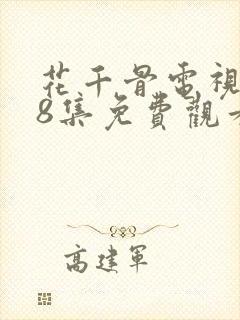 花千骨電視
8集免費觀
高建軍